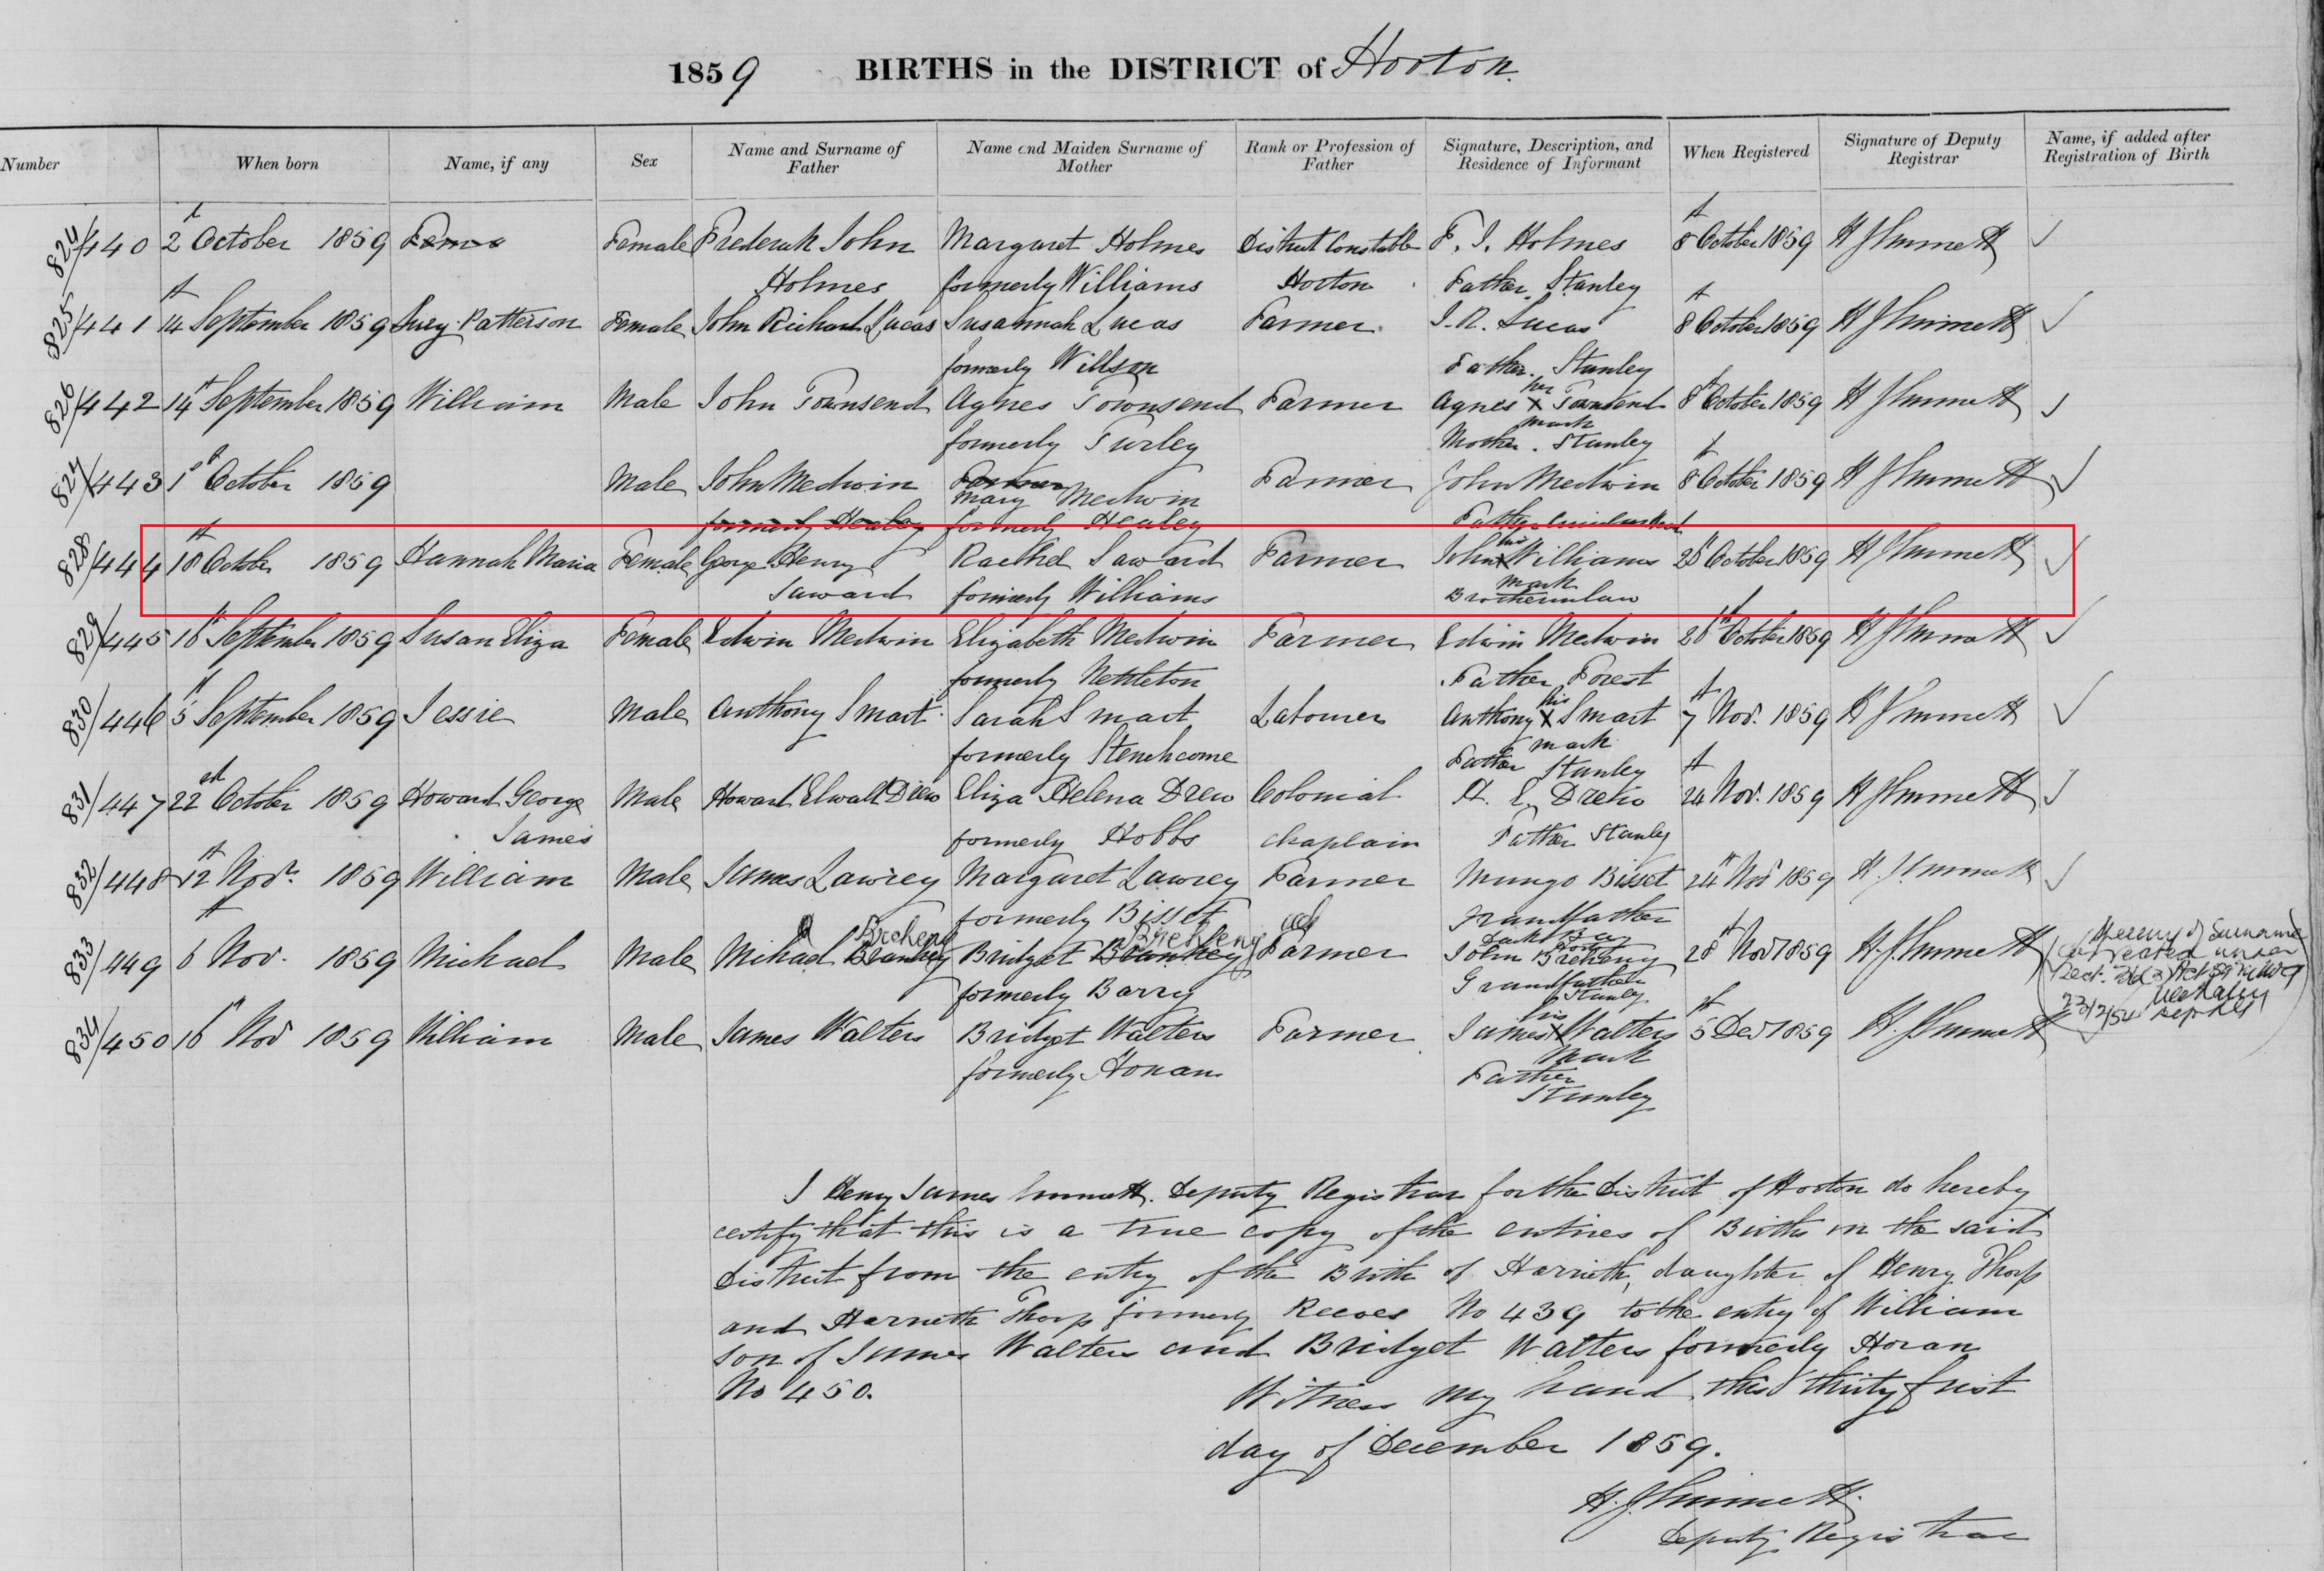 1859 BIRTHS in the DISTRICT of Horton.
Number When born Name, if any Sex Name and Surname of Father Name and Maiden Surname of Mother Rank or Profession of Father Signature, Description, and Residence of Informant When Registered Signature of Deputy Registrar Name, if added after Registration of Birth
824/440 2 October 1859 Female Frederick John Margaret Holmes District Constable F. J. Holmes 8th October 1859 H J Emmett ✓
Holmes formerly Williams Horton Father Stanley
825/441 14th September 1859 Patterson Female John Richard Lucas Susannah Lucas Farmer J. R. Lucas 8th October 1859 H J Emmett ✓
formerly Willson Father. Stanley
826/442 14th September 1859 William Male John Townsend Agnes Townsend Farmer Agnes her X mark Townsend 8th October 1859 H J Emmett ✓
formerly Turley Mother. Stanley
827/443 1st October 1859 Male John Medwin Farmer Mary Medwin Farmer John Medwin 8th October 1859 H J Emmett ✓
formerly Healey formerly Healey Father
828/444 18th October 1859 Hannah Maria Female George Henry Rachel Saward Farmer John his X mark Williams 28th October 1859 H J Emmett ✓
Saward formerly Williams Brother in law
829/445 16th September 1859 Susan Eliza Female Edwin Medwin Elizabeth Medwin Farmer Edwin Medwin 28th October 1859 H J Emmett ✓
formerly Nettleton Father Forest
830/446 5th September 1859 Jessie Male Anthony Smart Sarah Smart Labourer Anthony his X mark Smart 7th Nov. 1859 H J Emmett ✓
formerly Stenchcome Father Stanley
831/447 22nd October 1859 Howard George Male Howard Elwall Drew Eliza Helena Drew Colonial H. E. Drew 24th Nov. 1859 H J Emmett ✓
James formerly Hobbs Chaplain Father Stanley
832/448 12th Novr. 1859 William Male James Lawrey Margaret Lawrey Farmer Mungo Bisset 24th Nov 1859 H. J. Emmett ✓
formerly Bisset Grandfather
Breheny Breheny
833/449 6th Nov. 1859 Michael Male Michael Bridget Farmer John Breheny 28th Novr 1859 H. J. Emmett of Surname
formerly Barry Grandfather Stanley corrected under
834/450 16th Novr 1859 William Male James Walters Bridget Walters Farmer James his X mark Walters 5th Decr 1859 H. J. Emmett ✓ 22/2/54
formerly Honan Father
Stanley
I Henry James Emmett Deputy Registrar for the District of Horton do hereby
certify that this is a true copy of the entries of Births in the said
District from the entry of the Birth of Harrieth, daughter of Henry Thorp
and Harrieth Thorp formerly Reeves No 439 to the entry of William
son of James Walters and Bridget Walters formerly Honan
No 450.
Witness my hand this thirty first
day of December 1859.
H. J. Emmett.
Deputy Registrar